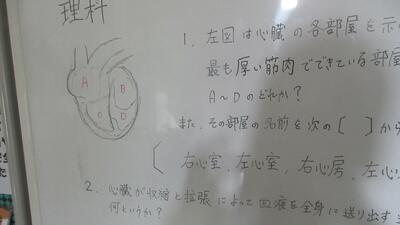 理科
1. 左図は心臓の各部屋を示
最も厚い筋肉でできている部屋
A〜Dのどれか?
また、その部屋の名前を次の〔 〕から
〔 右心室、左心室、右心房、左心
A
B
C
D
2. 心臓が収縮と拡張によって血液を全身に送り出す
何というか?